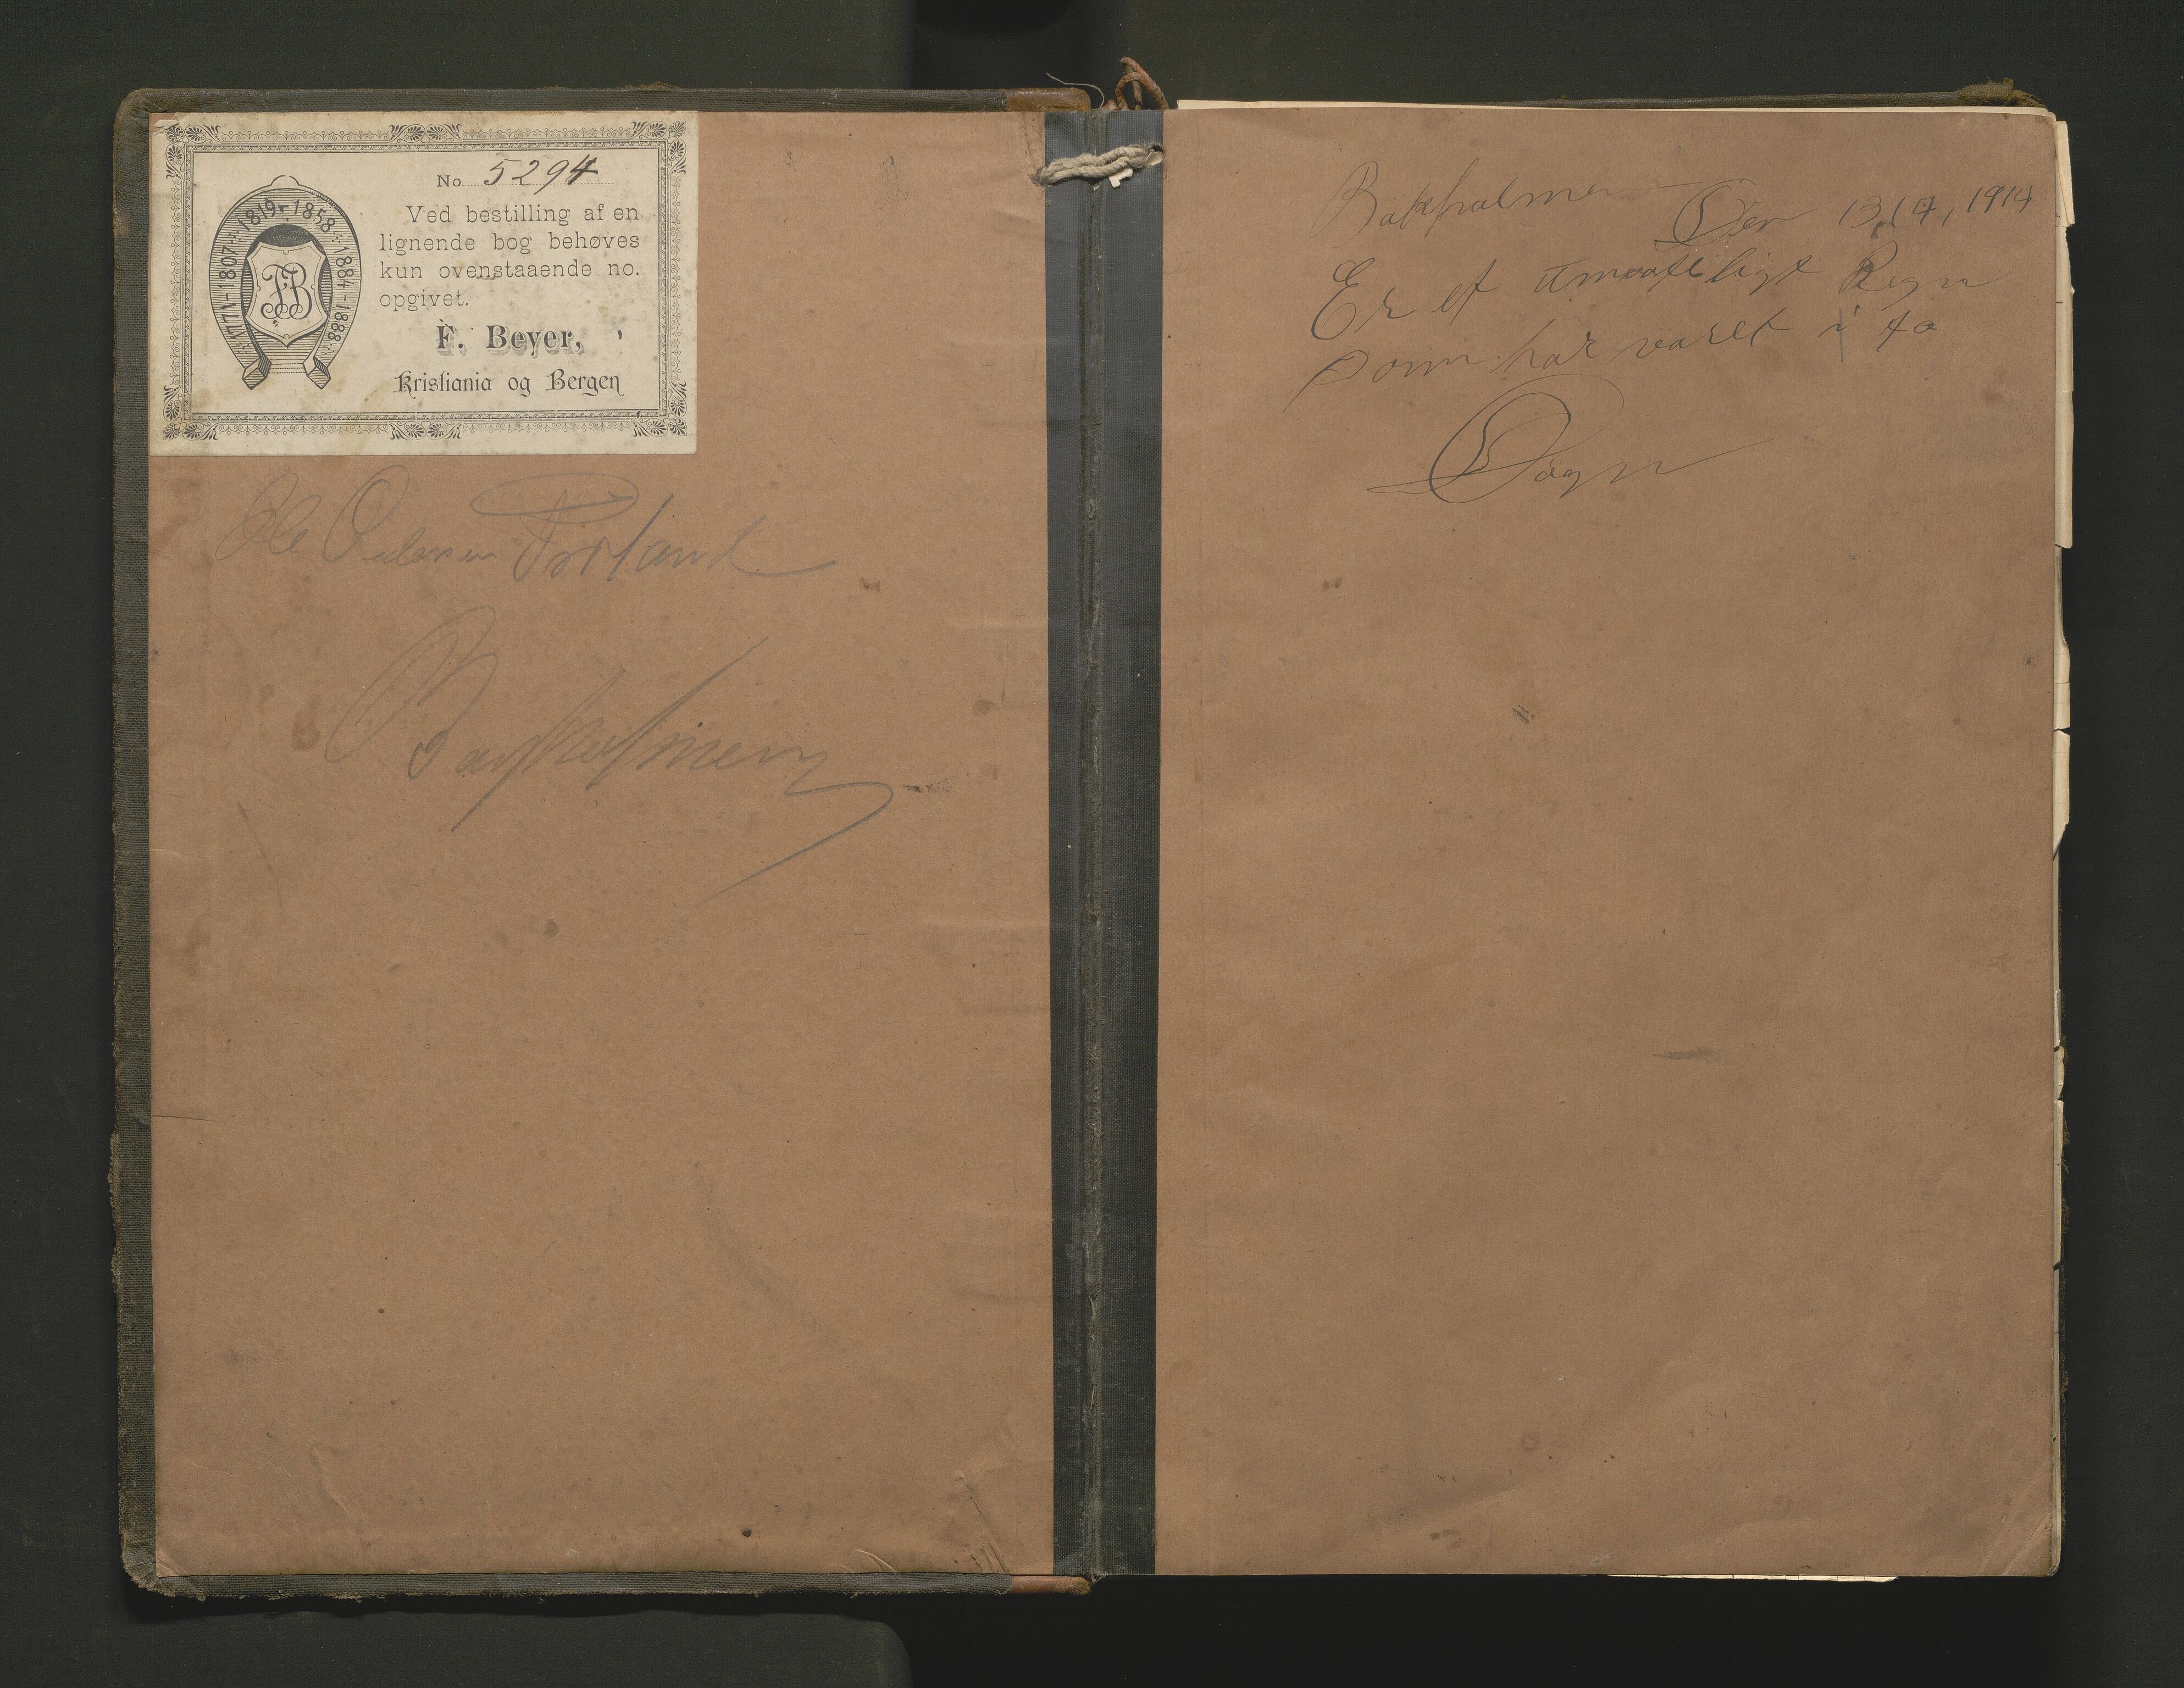 No. 5294
1771-1807-1819-1858-1884-1888
FB
Ved bestilling af en
lignende bog behøves
kun ovenstaaende no.
opgivet.
F. Beyer,
Kristiania og Bergen
Ole
Bakholmen
Den 13,14, 1914
Er et umaateligt Regn
som har været i to
Døgn